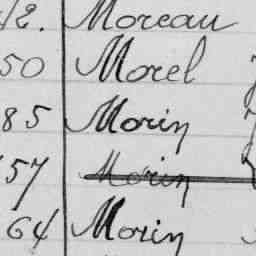 12. Moreau
50 Morel
85 Morin
57 Morin
64 Morin